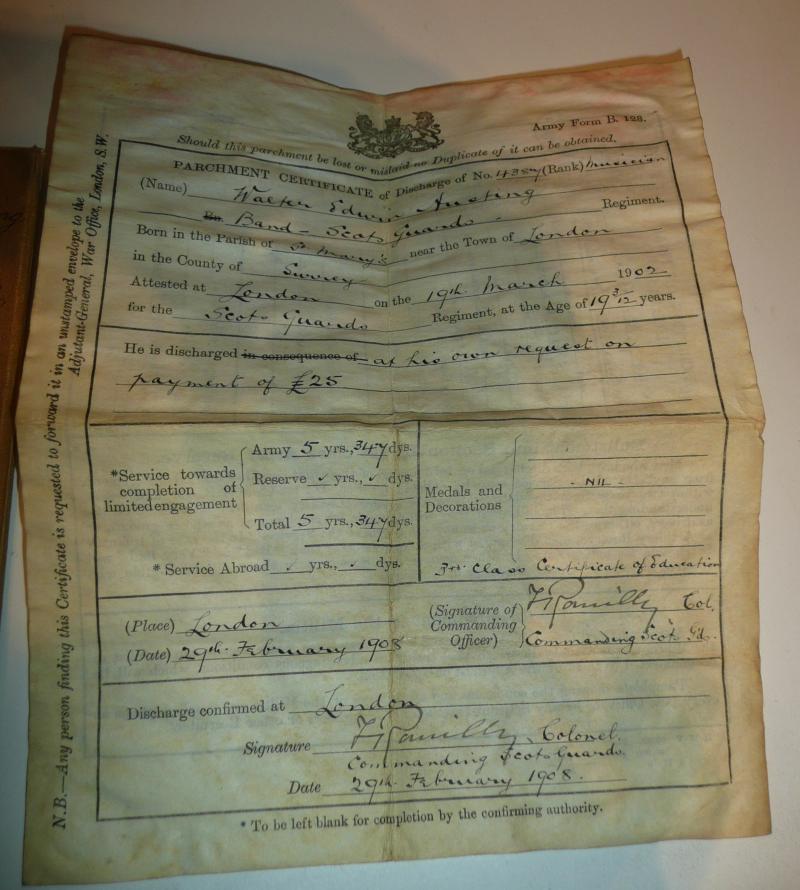 Army Form B. 128.
Should this parchment be lost or mislaid no Duplicate of it can be obtained.
PARCHMENT CERTIFICATE of Discharge of No. (Rank) Musician
(Name) Walter Edwin Austing
Band - Scots Guards Regiment.
Born in the Parish of St Mary's near the Town of London
in the County of Surrey
Attested at London on the 19th March 1902
for the Scots Guards Regiment, at the Age of 19 3/12 years.
He is discharged in consequence of at his own request on
payment of £25
*Service towards completion of limited engagement
Army 5 yrs., 347 dys.
Reserve ✓ yrs., ✓ dys.
Total 5 yrs., 347 dys.
* Service Abroad ✓ yrs., ✓ dys.
Medals and Decorations
- NIL -
3rd Class Certificate of Education
(Place) London
(Date) 29th February 1908
(Signature of Commanding Officer) FRomilly Col.
Commanding Scots Gds.
Discharge confirmed at London
Signature FRomilly Colonel.
Commanding Scots Guards.
Date 29th February 1908.
* To be left blank for completion by the confirming authority.
N.B.—Any person finding this Certificate is requested to forward it in an unstamped envelope to the
Adjutant-General, War Office, London, S.W.